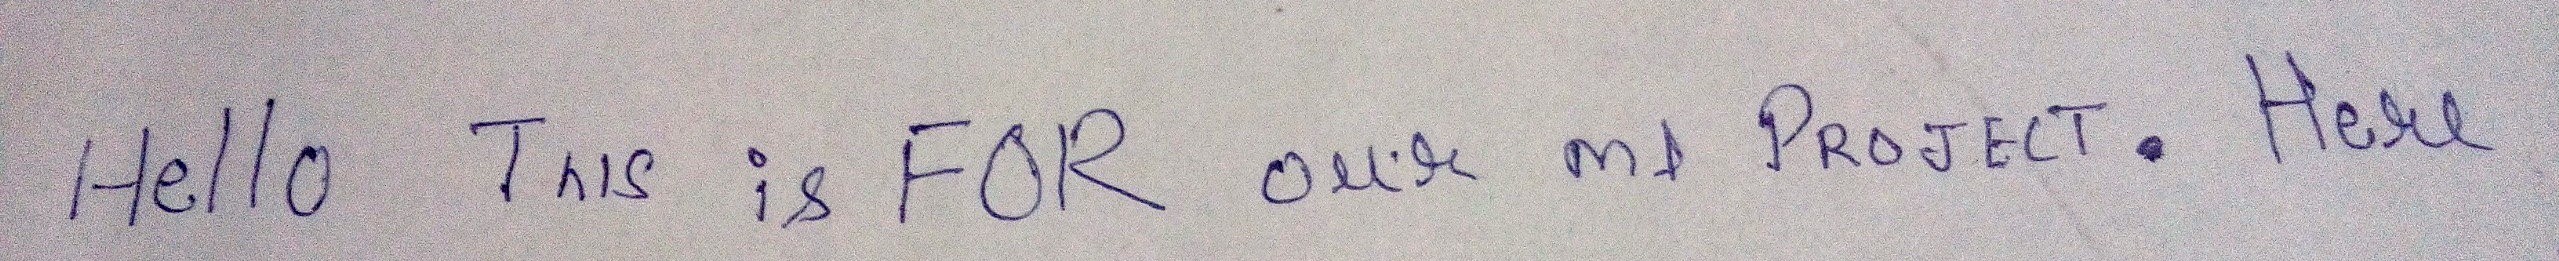 Hello This is FOR our PROJECT. Here